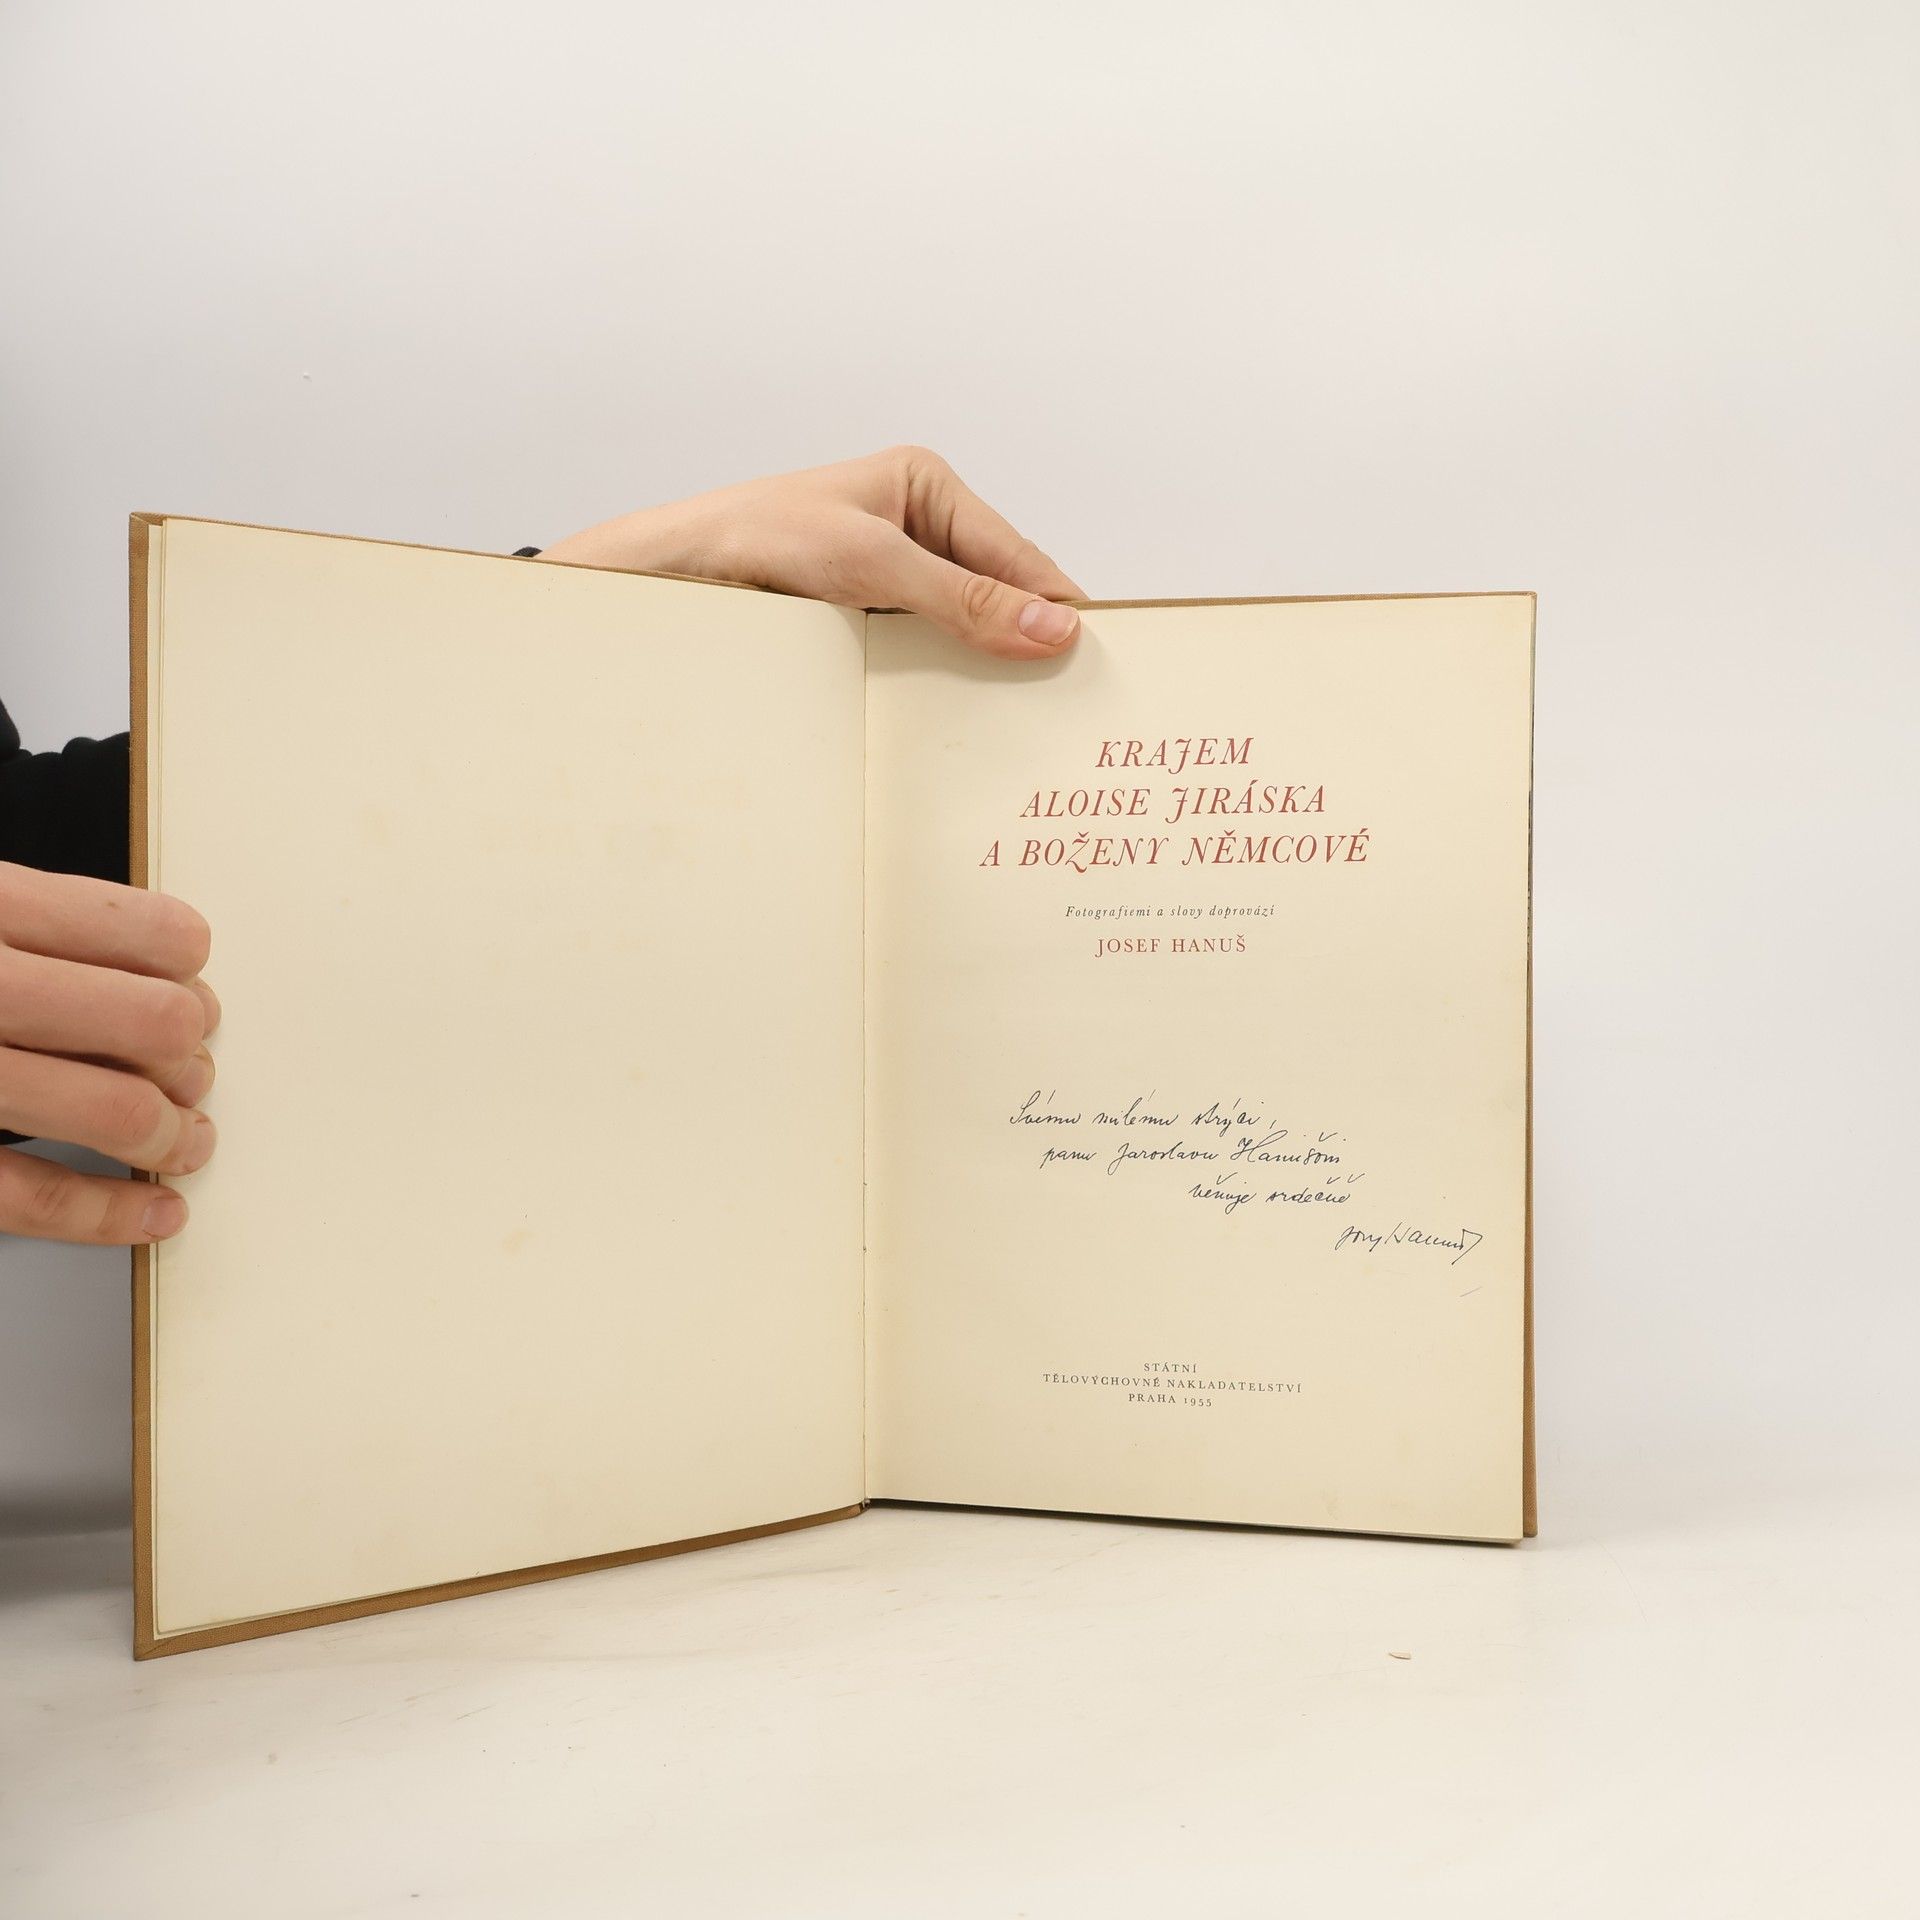 KRAJEM
ALOISE JIRÁSKA
A BOŽENY NĚMCOVÉ
Fotografiemi a slovy doprovází
JOSEF HANUŠ
Svému milému strýci,
panu Jaroslavu Hanušovi
věnuje srdečně
Josef Hanuš
STÁTNÍ
TĚLOVÝCHOVNÉ NAKLADATELSTVÍ
PRAHA 1955